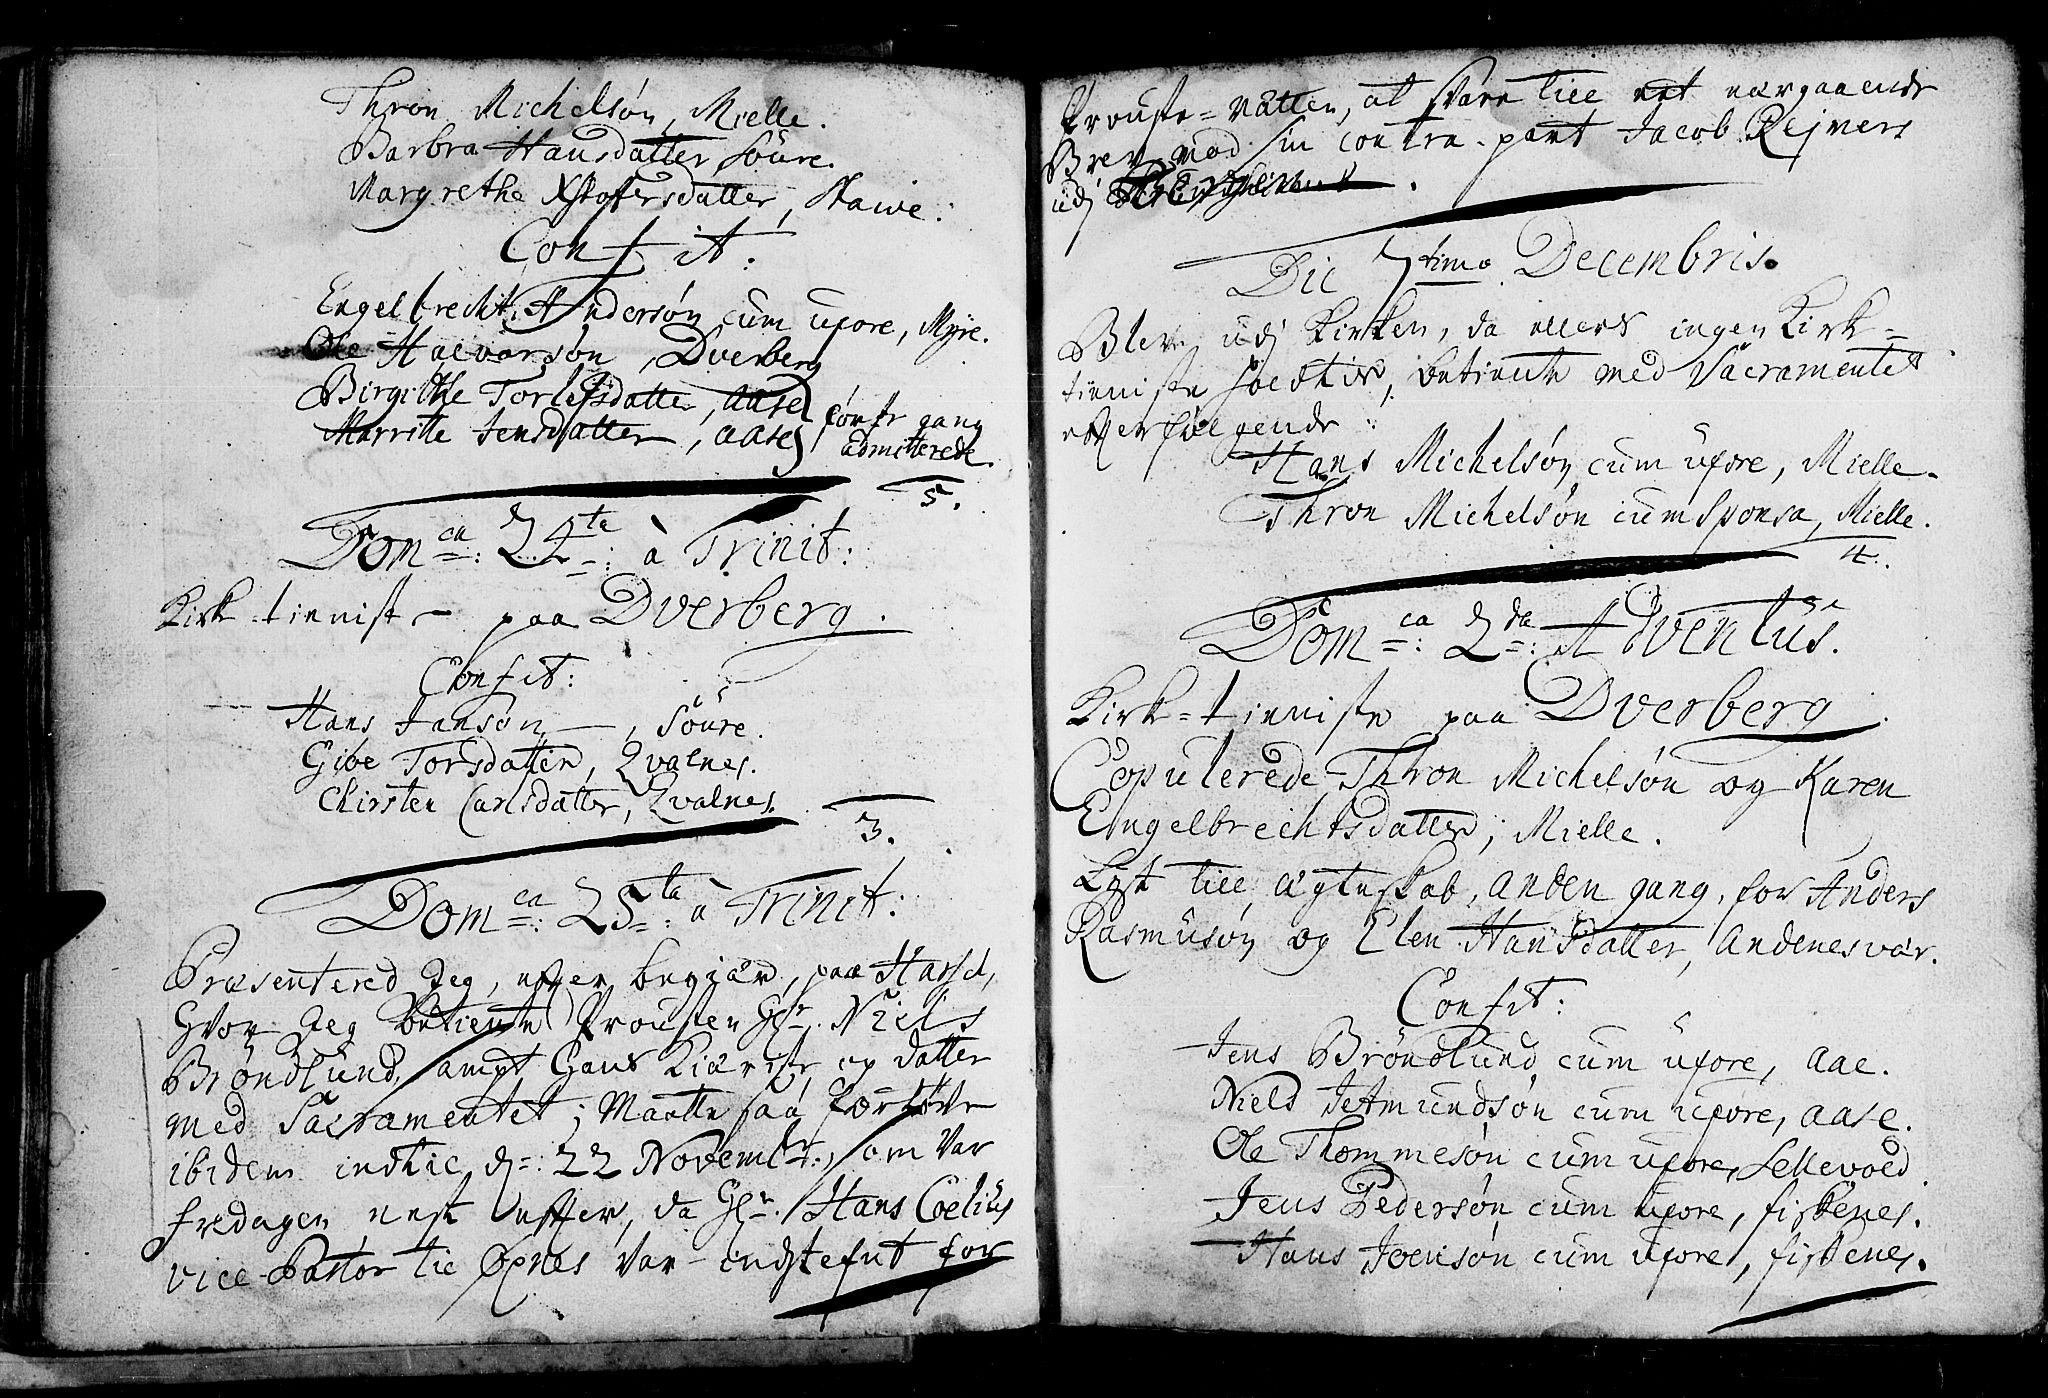 Thron Michelsøn, Mielle.
Barbra Hansdatter, Söure.
Margrethe Xstofersdatter, Stawe.
Confit:
Engelbrecht Andersøn cum uxore, Myre.
Ole Halvorsøn, Dverberg
Birgithe Torlefsdatter, Aase
Marritte Jensdatter, Aase, første gang
admitterede.
5.
Dom ca: 24 te: à Trinit:
Kirk-tienniste paa Dverberg.
Confit:
Hans Jansøn, Söure.
Giøe Torsdatter, Qvalnes.
Chirsten Carlsdatter, Qvalnes.
3.
Dom ca: 25 ta: à Trinit:
Præsentered Jeg, efter begiær, paa Hassel,
Hvor Jeg betiente Prousten Hr. Niels
Brøndlund, sampt Hans Kiæriste og datter
med Sacramentet; Maatte saa fortøve
ibidem indtil d: 22 Novembr:, som var
fredagen nest efter, da Hr. Hans Coelius
vice-Pastor til Øxnes var indstefnt for
Prouste-Rætten, at svare till et nærgaaende
Brev mod sin contra-part Jacob Rejners
udj
Die 7timo Decembris.
Blev udj Kirken, da ellers ingen Kirk-
tienniste holdtis, betiente med Sacramentet
efterfølgende:
Hans Michelsøn cum uxore, Mielle.
Thron Michelsøn cum Sponsa, Mielle.
4.
Dom ca: 2 da: Adventus.
Kirk-tienniste paa Dverberg.
Copulerede Thron Michelsøn og Karen
Engelbrechtsdatter, Mielle.
Lyst till ægteskab, anden gang, for Anders
Rasmusøn og Elen Hansdatter, Andenesvær.
Confit:
Jens Brøndlund cum uxore, Aae.
Niels Amundsøn cum uxore, Aase.
Ole Thommesøn cum uxore, Sellevold
Jens Pedersøn cum uxore, fiskenes.
Hans Joensøn cum uxore, fiskenes.